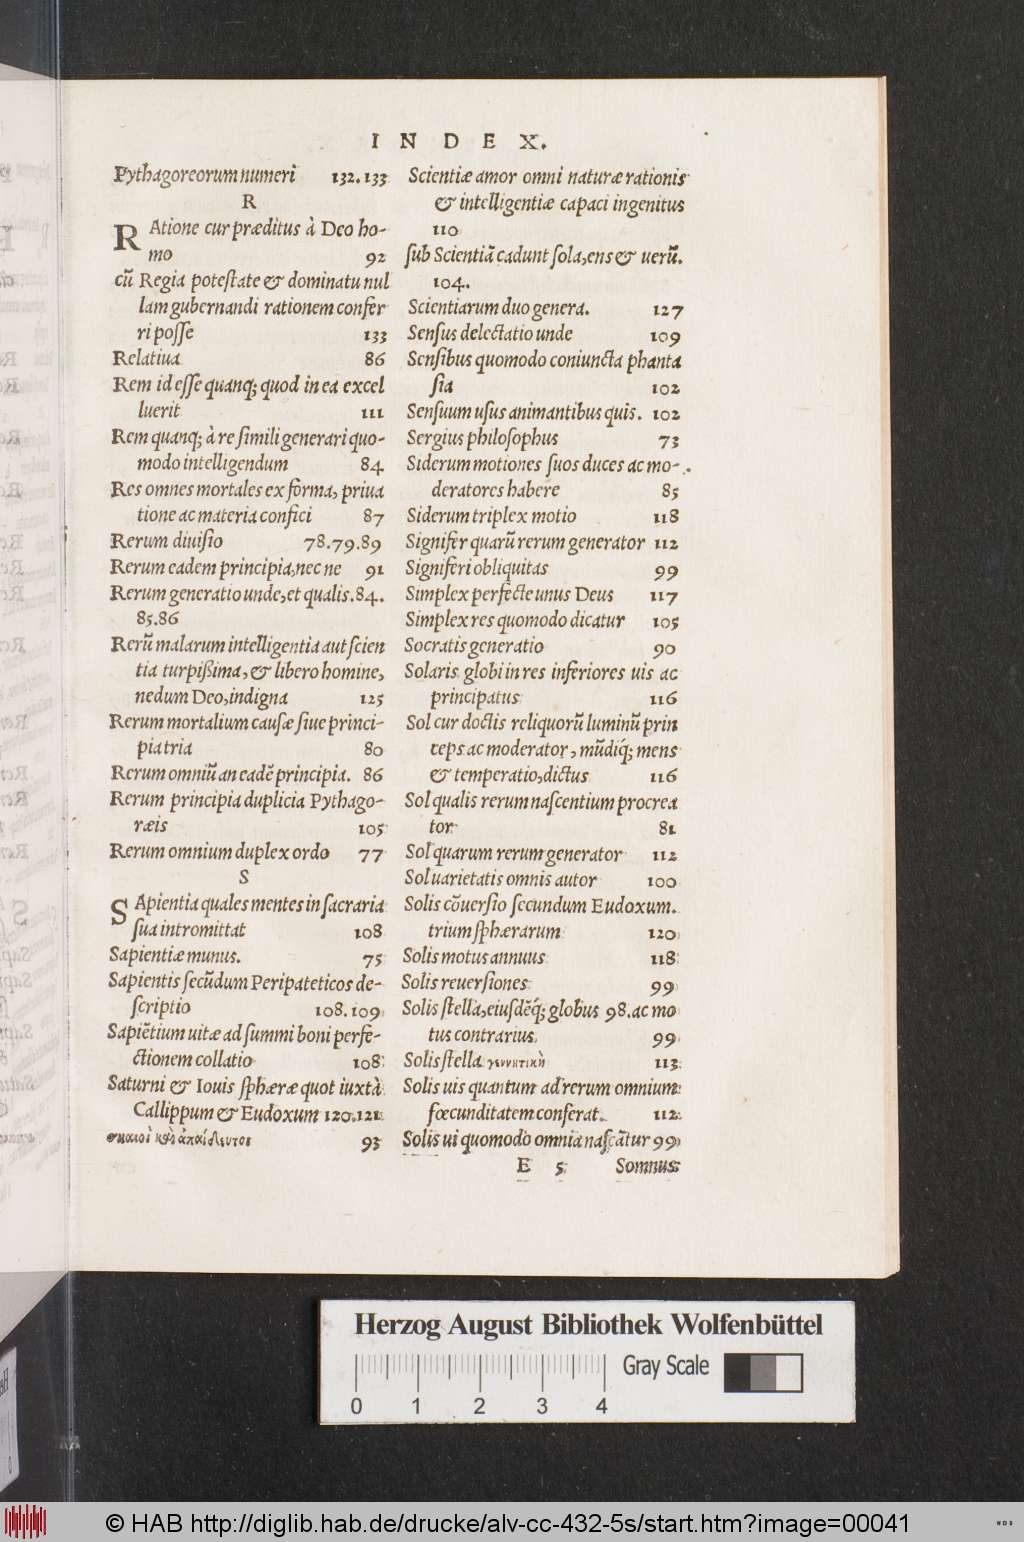 INDEX.
Pythagoreorum numeri 132.133
R
RAtione cur præditus à Deo ho-
mo 92
cũ Regia potestate & dominatu nul
lam gubernandi rationem confer
ri posse 133
Relatiua 86
Rem id esse quanq; quod in ea excel
luerit 111
Rem quanq; à re simili generari quo-
modo intelligendum 84
Res omnes mortales ex forma, priua
tione ac materia confici 87
Rerum diuisio 78.79.89
Rerum eadem principia, nec ne 91
Rerum generatio unde, et qualis. 84.
85.86
Rerũ malarum intelligentia aut scien
tia turpißima, & libero homine,
nedum Deo, indigna 125
Rerum mortalium causæ siue princi-
pia tria 80
Rerum omniũ an eadẽ principia. 86
Rerum principia duplicia Pythago-
ræis 105
Rerum omnium duplex ordo 77
S
SApientia quales mentes in sacraria
sua intromittat 108
Sapientiæ munus. 75
Sapientis secũdum Peripateticos de-
scriptio 108.109
Sapiẽtium uitæ ad summi boni perfe-
ctionem collatio 108
Saturni & Iouis sphæræ quot iuxtà
Callippum & Eudoxum 120.121
σκαιοὶ καὶ ἀπαίδευτοι 93
Scientiæ amor omni naturæ rationis
& intelligentiæ capaci ingenitus
110
sub Scientiã cadunt sola, ens & uerũ.
104.
Scientiarum duo genera. 127
Sensus delectatio unde 109
Sensibus quomodo coniuncta phanta
sia 102
Sensuum usus animantibus quis. 102
Sergius philosophus 73
Siderum motiones suos duces ac mo-
deratores habere 85
Siderum triplex motio 118
Signifer quarũ rerum generator 112
Signiferi obliquitas 99
Simplex perfecte unus Deus 117
Simplex res quomodo dicatur 105
Socratis generatio 90
Solaris globi in res inferiores uis ac
principatus 116
Sol cur doctis reliquorũ luminũ prin
ceps ac moderator, mũdiq́; mens
& temperatio, dictus 116
Sol qualis rerum nascentium procrea
tor 81
Sol quarum rerum generator 112
Sol uarietatis omnis autor 100
Solis cõuersio secundum Eudoxum.
trium sphærarum 120
Solis motus annuus 118
Solis reuersiones 99
Solis stella, eiusdẽq́; globus 98. ac mo
tus contrarius 99
Solis stella γεννητικὴ 113
Solis uis quantum ad rerum omnium
fœcunditatem conferat. 112
Solis ui quomodo omnia nascãtur 99
E 5 Somnus
Herzog August Bibliothek Wolfenbüttel
Gray Scale
0 1 2 3 4
© HAB http://diglib.hab.de/drucke/alv-cc-432-5s/start.htm?image=00041
WDB